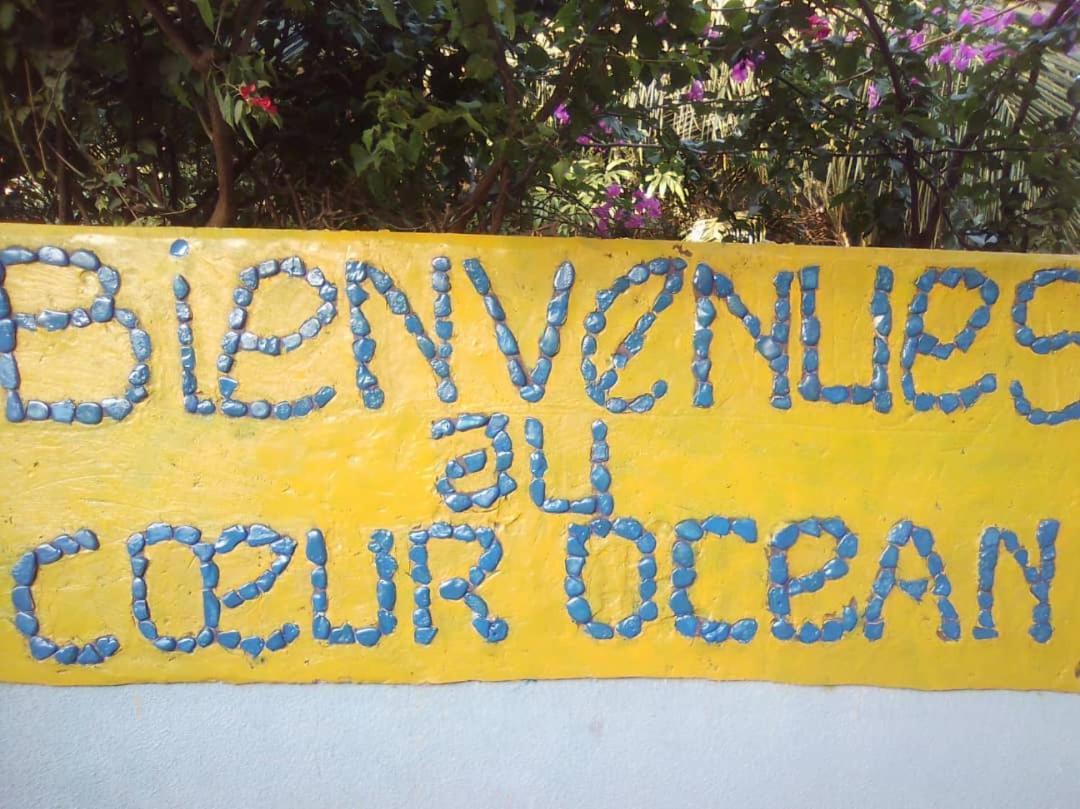 BienVenUes
au
CœUR OCeAN